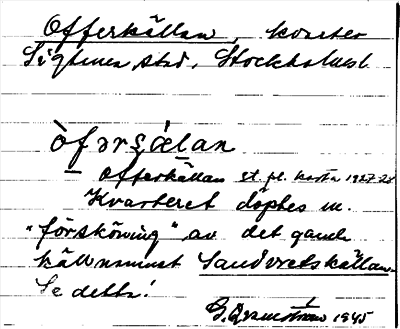 Offerkällan, kvarter
Sigtuna stad, Stockholms l.
òfərşǽlan
Offerkällan st. pl. karta 1927-28
Kvarteret döptes m.
"försköning" av det gamla
källnamnet Sandvretskällan.
Se detta!
G. 1945